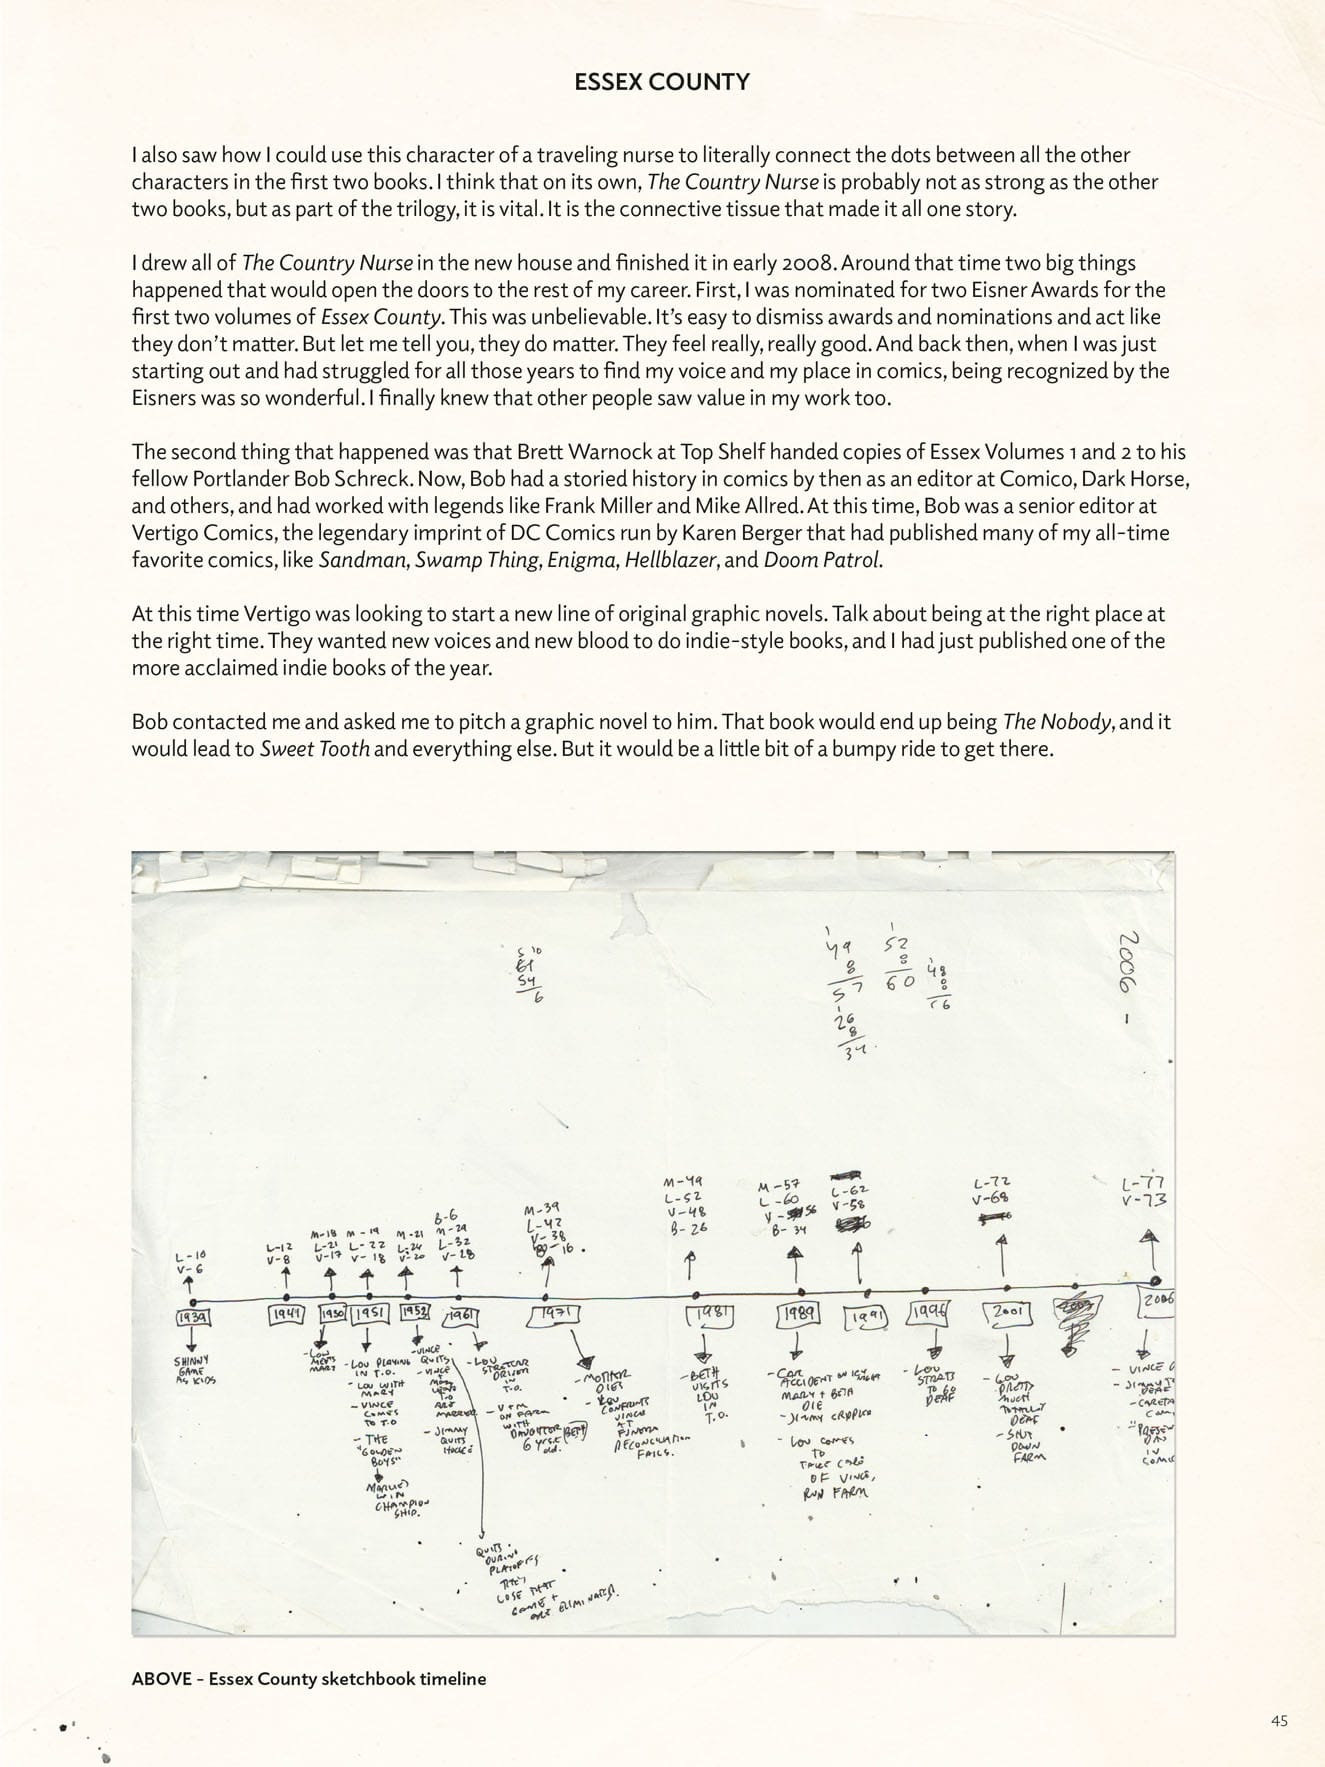 ESSEX COUNTY
I also saw how I could use this character of a traveling nurse to literally connect the dots between all the other
characters in the first two books. I think that on its own, The Country Nurse is probably not as strong as the other
two books, but as part of the trilogy, it is vital. It is the connective tissue that made it all one story.
I drew all of The Country Nurse in the new house and finished it in early 2008. Around that time two big things
happened that would open the doors to the rest of my career. First, I was nominated for two Eisner Awards for the
first two volumes of Essex County. This was unbelievable. It's easy to dismiss awards and nominations and act like
they don't matter. But let me tell you, they do matter. They feel really, really good. And back then, when I was just
starting out and had struggled for all those years to find my voice and my place in comics, being recognized by the
Eisners was so wonderful. I finally knew that other people saw value in my work too.
The second thing that happened was that Brett Warnock at Top Shelf handed copies of Essex Volumes 1 and 2 to his
fellow Portlander Bob Schreck. Now, Bob had a storied history in comics by then as an editor at Comico, Dark Horse,
and others, and had worked with legends like Frank Miller and Mike Allred. At this time, Bob was a senior editor at
Vertigo Comics, the legendary imprint of DC Comics run by Karen Berger that had published many of my all-time
favorite comics, like Sandman, Swamp Thing, Enigma, Hellblazer, and Doom Patrol.
At this time Vertigo was looking to start a new line of original graphic novels. Talk about being at the right place at
the right time. They wanted new voices and new blood to do indie-style books, and I had just published one of the
more acclaimed indie books of the year.
Bob contacted me and asked me to pitch a graphic novel to him. That book would end up being The Nobody, and it
would lead to Sweet Tooth and everything else. But it would be a little bit of a bumpy ride to get there.
54
6
49
8
57
26
8
34
52
8
60
48
8
2006 -
L-10
V-6
L-12
V-8
M-18
L-21
V-17
M-19
L-22
V-18
M-21
L-24
V-20
B-6
M-29
L-32
V-28
M-39
L-42
V-38
B-16
M-49
L-52
V-48
B-26
M-57
L-60
V-56
B-34
L-62
V-58
L-72
V-68
L-77
V-73
1939
1941
1950
1951
1952
1961
1971
1981
1989
1991
1996
2001
2006
SHINNY
GAME
AS KIDS
-LOU
MEETS
MARY
-LOU PLAYING
IN T.O.
-LOU WITH
MARY
-VINCE
COMES
TO T.O
-THE
"GOLDEN
BOYS"
WIN
CHAMPION
SHIP.
-VINCE
QUITS
-VINCE
+
MARY
T.O
ARE
MARRIED
-JIMMY
QUITS
QUITS
DURING
PLAYOFFS
THEY
LOSE THAT
GAME +
ARE ELIMINATED.
-LOU
STREETCAR
DRIVER
IN
T.O.
-V+M
ON FARM
WITH
DAUGHTER (BETH)
6 yrs.
old.
-MOTHER
DIES
-LOU
CONFRONTS
VINCE
AT
FUNERAL
RECONCILIATION
FAILS.
-BETH
VISITS
LOU
IN
T.O.
-CAR
ACCIDENT ON
MARY + BETH
DIE
-JIMMY CRIPPLED
-LOU COMES
TO
TAKE CARE
OF VINCE,
RUN FARM
-LOU
STARTS
TO GO
DEAF
-LOU
PRETTY
MUCH
TOTALLY
DEAF
-SHUT
DOWN
FARM
-VINCE
DEAF
IN
ABOVE - Essex County sketchbook timeline
45